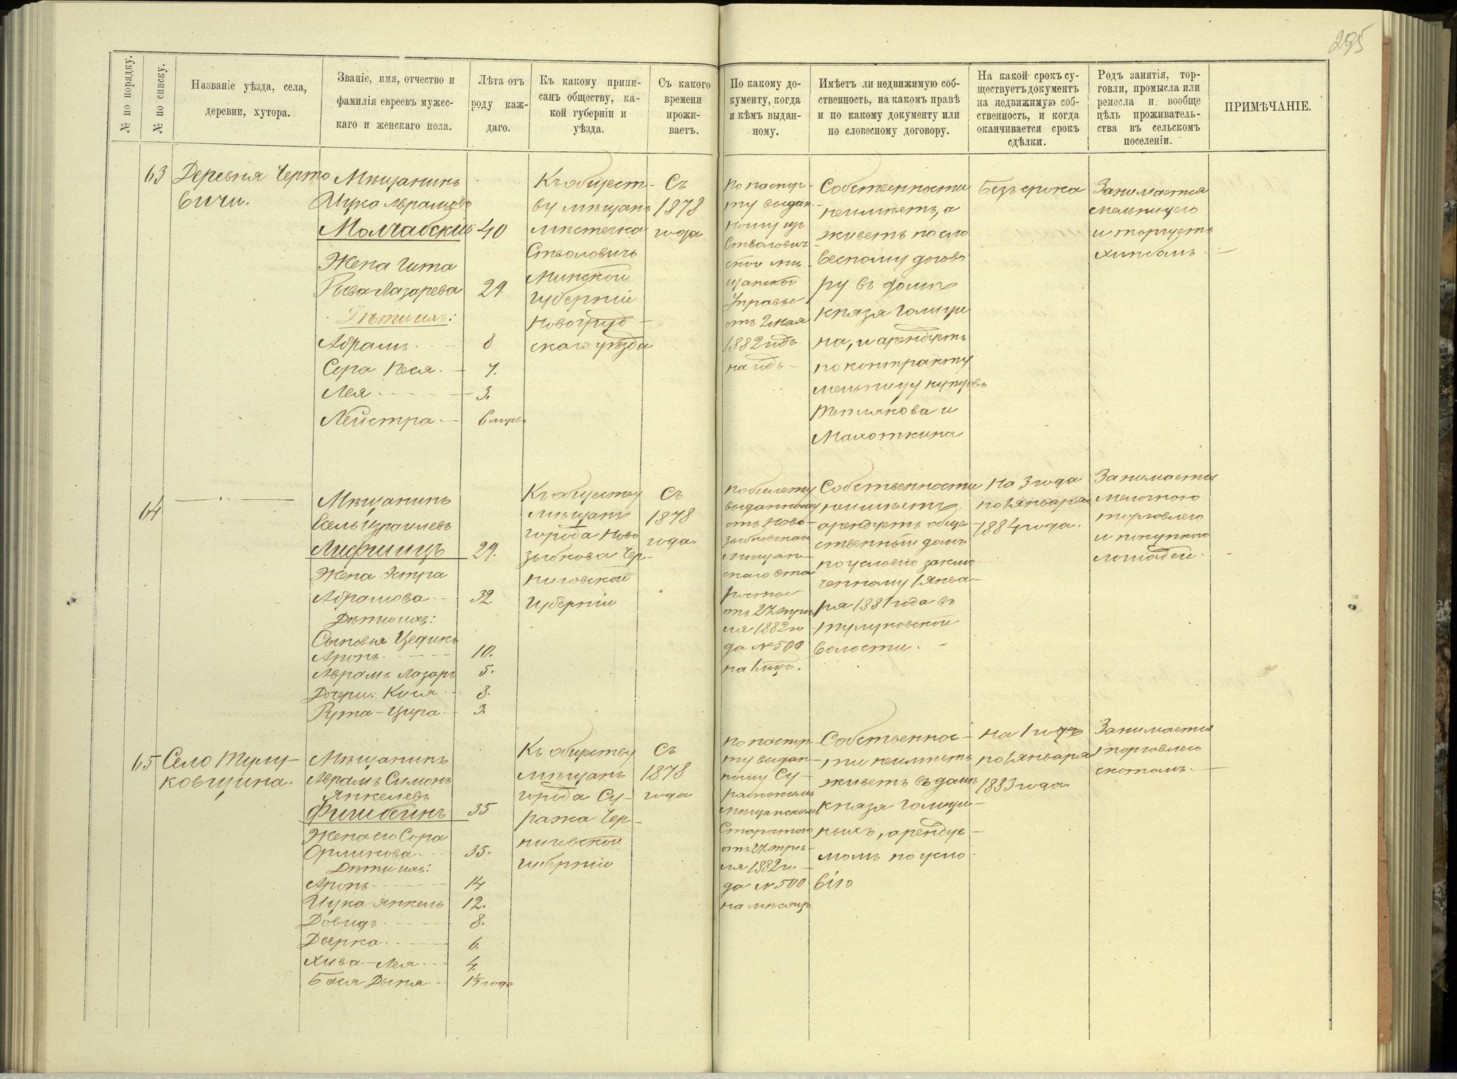 295
№ по порядку.
№ по списку.
Названіе уѣзда, села,
деревни, хутора.
Званіе, имя, отчество и
фамилія евреевъ мужес-
каго и женскаго пола.
Лѣта отъ
роду каж-
даго.
Къ какому припи-
санъ обществу, ка-
кой губерніи и
уѣзда.
Съ какого
времени
прожи-
ваетъ.
По какому до-
кументу, когда
и кѣмъ выдан-
ному.
Имѣетъ ли недвижимую соб-
ственность, на какомъ правѣ
и по какому документу или
по словесному договору.
На какой срокъ су-
ществуетъ документъ
на недвижимую соб-
ственность, и когда
оканчивается срокъ
сдѣлки.
Родъ занятія, тор-
говли, промысла или
ремесла и вообще
цѣль проживатель-
ства въ сельскомъ
поселеніи.
ПРИМѢЧАНІЕ.
63
Деревня Черто
вичи.
Мѣщанинъ
Молчабскій 40
Жена
Лазарева 29
Дѣти ихъ:
Абрамъ 8
Сора Песя 7.
Лея 3.
Къ общест-
ву мѣщанъ
мѣстечка
Столовичъ
Минской
губерніи
Новогруд-
скаго уѣзда
Съ
1878
года
По паспор-
ту выдан-
ному изъ
Столович-
ской мѣ-
щанской
Управы
отъ 2 мая
1882 годъ
на годъ
Собственности
неимѣетъ, а
живетъ по сло
весному догово
ру въ домѣ
князя Голици
на, и арендуетъ
по контракту
мельницу купцовъ
и
Безъ срока
Занимается
мельницею
и торгуетъ
хлѣбомъ.
64
Мѣщанинъ
Лифшицъ 29.
Жена Эстра
Абрамова 32
Дѣти ихъ:
Сыновья
Аронъ 10.
Абрамъ Лазарь 5.
Дочери: 8.
3
Къ обществу
мѣщанъ
города Ново
зыбкова Чер-
ниговской
губерніи
Съ
1878
года
По билету
выданному
отъ Ново-
зыбковскаго
мѣщан-
скаго ста
росты
отъ 27 апрѣ-
ля 1882 го
да № 509
на 1 годъ.
Собственности
неимѣетъ
арендуетъ обще
ственный домъ
по условію заклю
ченному 1 янва-
ря 1881 года въ
волости.
На 3 года
по 1 января
1884 года.
Занимается
мелочною
торговлею
и покупкою
лошадей.
65
Село Тулу-
ковщина.
Мѣщанинъ
Абрамъ Симонъ
Янкелевъ
35
Жена его Сора
35.
Дѣти ихъ:
Аронъ 14
Янкель 12.
Довидъ 8.
Дверка 6
Хива-Лея 4.
Бася 1½ года
Къ обществу
мѣщанъ
города Су-
ража Чер-
ниговской
губерніи
Съ
1878
года
По паспор-
ту выдан-
ному Су-
ражскимъ
мѣщанскимъ
Старостою
отъ 27 апрѣ-
ля 1882 го-
да № 500
на
Собственнос-
ти неимѣетъ
живетъ въ домѣ
князя Голици-
ныхъ, арендуе-
момъ по усло-
вію
на 1 годъ
по 1 января
1883 года
Занимается
торговлею
скотомъ.